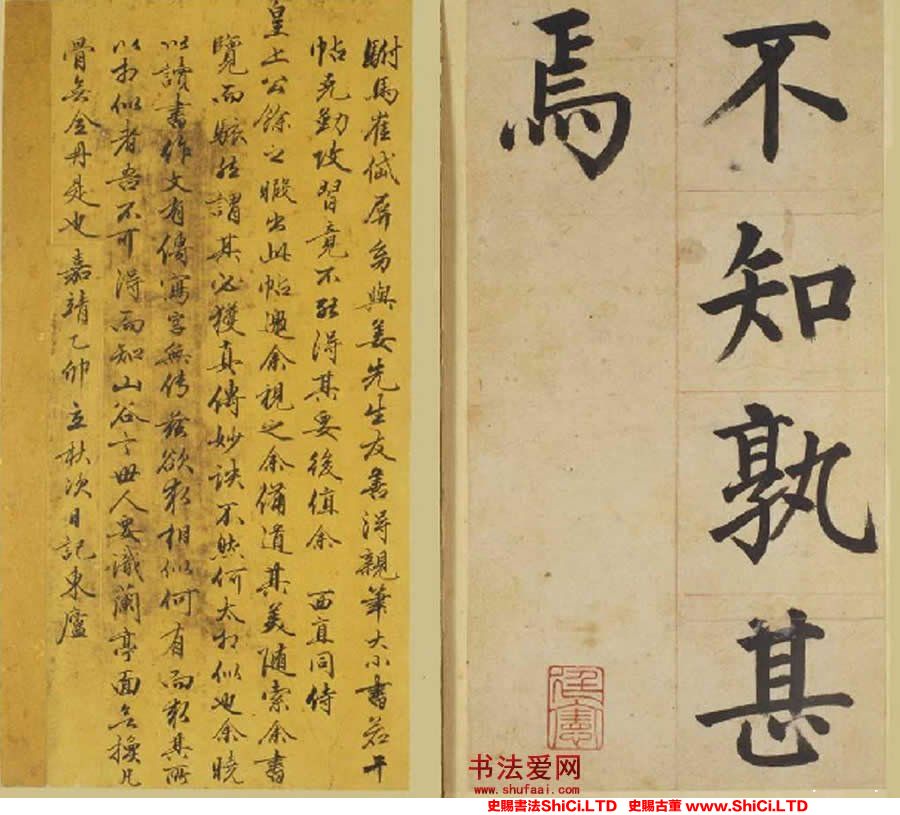 不知孰甚
焉
駙馬崔岱屏多與姜先生友善得親筆大小書若干
帖克勤攻習竟不能得其要後值余 西直同侍
皇上公餘之暇出此帖邀余視之余備道其美隨索余書
覽而駭然謂其必獲真傳妙訣不然何太相似也余曉
以讀書作文有傳寫字無傳茲欲求相似何有而求其所
以相似者吾不可得而知山谷云毋人要識蘭亭面無換凡
骨無金丹是也 嘉靖乙卯立秋次日記東廬
书法爱网
www.shufaai.com
史賜書法ShiCi.LTD 史賜古董 www.ShiCi.LTD